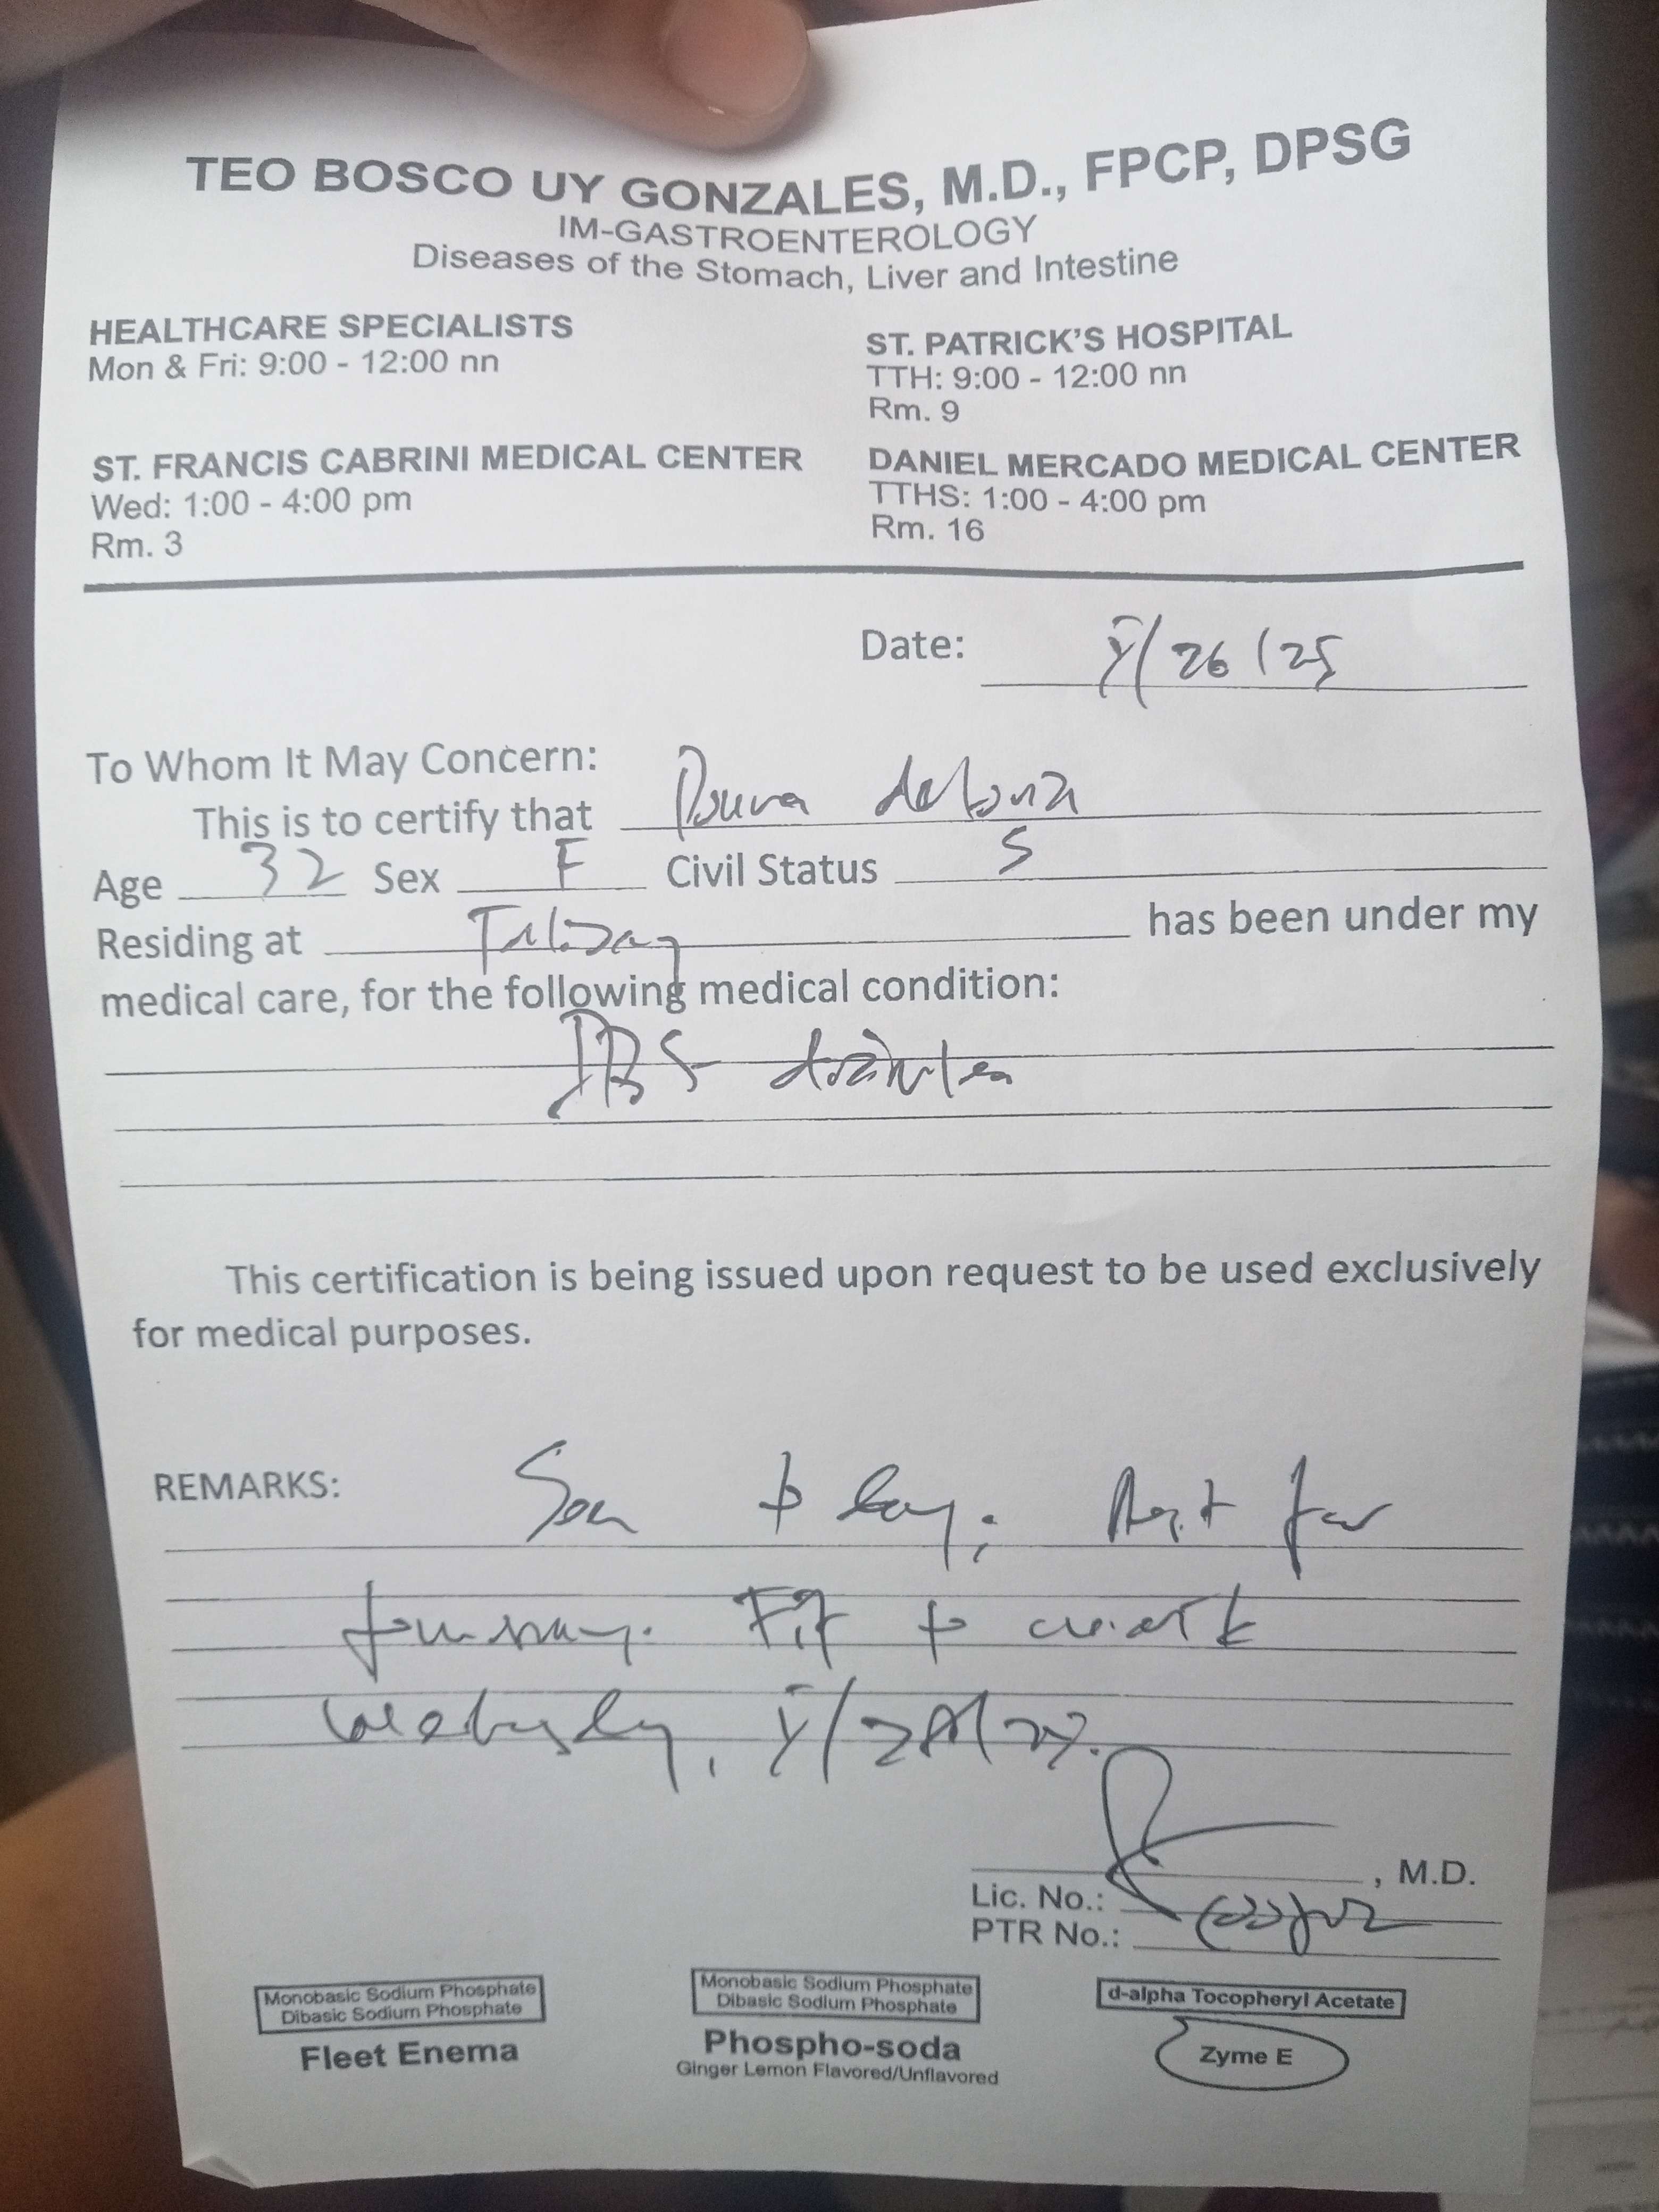 TEO BOSCO UY GONZALES, M.D., FPCP, DPSG
IM-GASTROENTEROLOGY
Diseases of the Stomach, Liver and Intestine
HEALTHCARE SPECIALISTS
Mon & Fri: 9:00 - 12:00 nn
ST. PATRICK'S HOSPITAL
TTH: 9:00 - 12:00 nn
Rm. 9
ST. FRANCIS CABRINI MEDICAL CENTER
Wed: 1:00 - 4:00 pm
Rm. 3
DANIEL MERCADO MEDICAL CENTER
TTHS: 1:00 - 4:00 pm
Rm. 16
Date: /26/25
To Whom It May Concern:
This is to certify that
Age 32 Sex F Civil Status S
Residing at has been under my
medical care, for the following medical condition:
IBS
This certification is being issued upon request to be used exclusively
for medical purposes.
REMARKS: Seen today; Rest for
Fit to work
M.D.
Lic. No.:
PTR No.:
Monobasic Sodium Phosphate
Dibasic Sodium Phosphate
Fleet Enema
Monobasic Sodium Phosphate
Dibasic Sodium Phosphate
Phospho-soda
Ginger Lemon Flavored/Unflavored
d-alpha Tocopheryl Acetate
Zyme E